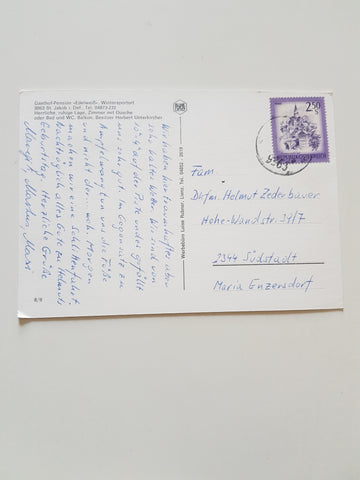 Gasthof-Pension «Edelweiß», Wintersportort
9963 St. Jakob i. Def., Tel. 04873-232
Herrliche, ruhige Lage, Zimmer mit Dusche
oder Bad und WC, Balkon. Besitzer Herbert Unterkircher
Wir haben hier traumhaftes aber
sehr kaltes Wetter. Wir sind von
10-4 auf der Piste und es gefällt
uns sehr gut. Im Gegensatz zur
uns die Füße
weh. Morgen
machen wir eine Schlittenfahrt.
Nachträglich alles Gute zu Helmuts
Geburtstag. Herzliche Grüße
Maxi
8/9
Werbebüro Luise Rubner Lienz, Tel. 04852 -
2,50
S
REPUBLIK ÖSTERREICH
Fam.
Dkfm. Helmut Zederbauer
Hohe-Wand-str. 39/7
2344 Südstadt
Maria Enzersdorf